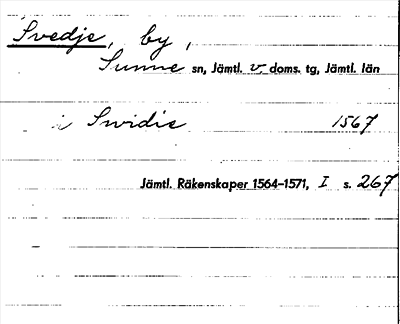 Svedje, by,
Sunne sn, Jämtl. v. doms. tg, Jämtl. län
i Swidie 1567
Jämtl. Räkenskaper 1564-1571, I s. 267